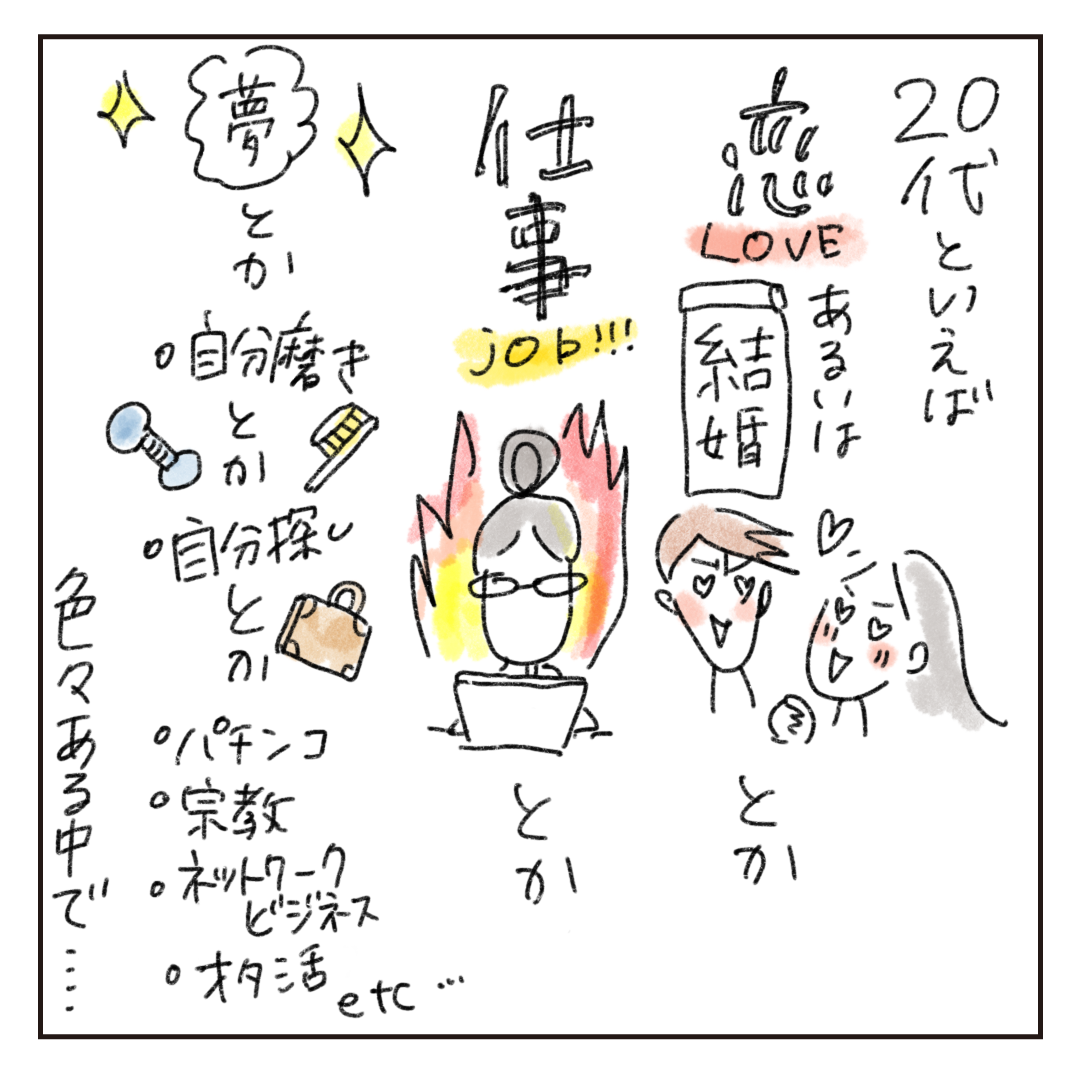 20代といえば
恋
LOVE
あるいは
結婚
とか
仕事
job!!!
とか
夢
とか
°自分磨き
とか
°自分探し
とか
°パチンコ
°宗教
°ネットワーク
ビジネス
°オタ活
etc…
色々ある中で……